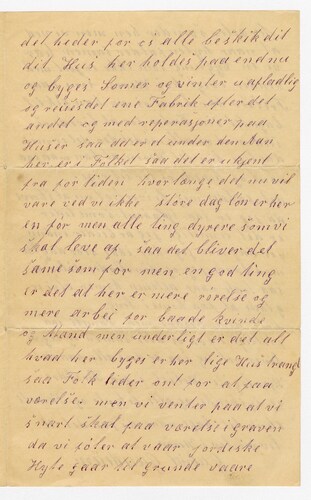 det heder for os alle beskik dit
dit Hus her holdes paa endnu
og byges Somer og vinter uafladlig
og reisedet ene Fabrik efter det
andet og med reperasjoner paa
Huser saa det er et under den Man
her er i Folket saa det er ukjent
fra for tiden hvor lange det nu vil
vare ved vi ikke store dag løn er her
en før men alle ting dyrere som vi
skal leve af saa det bliver det
same som før men en god ting
er det at her er mere rørelse og
mere arbei for baade kvinde
og Mand men underligt er det alt
hvad her byges er her lige Hus trang
saa Folk lider ont for at faa
værelse men vi venter paa at vi
snart skal faa værelse i graven
da vi føler at vaar jordiske
Hyte gaar til grunde vaare